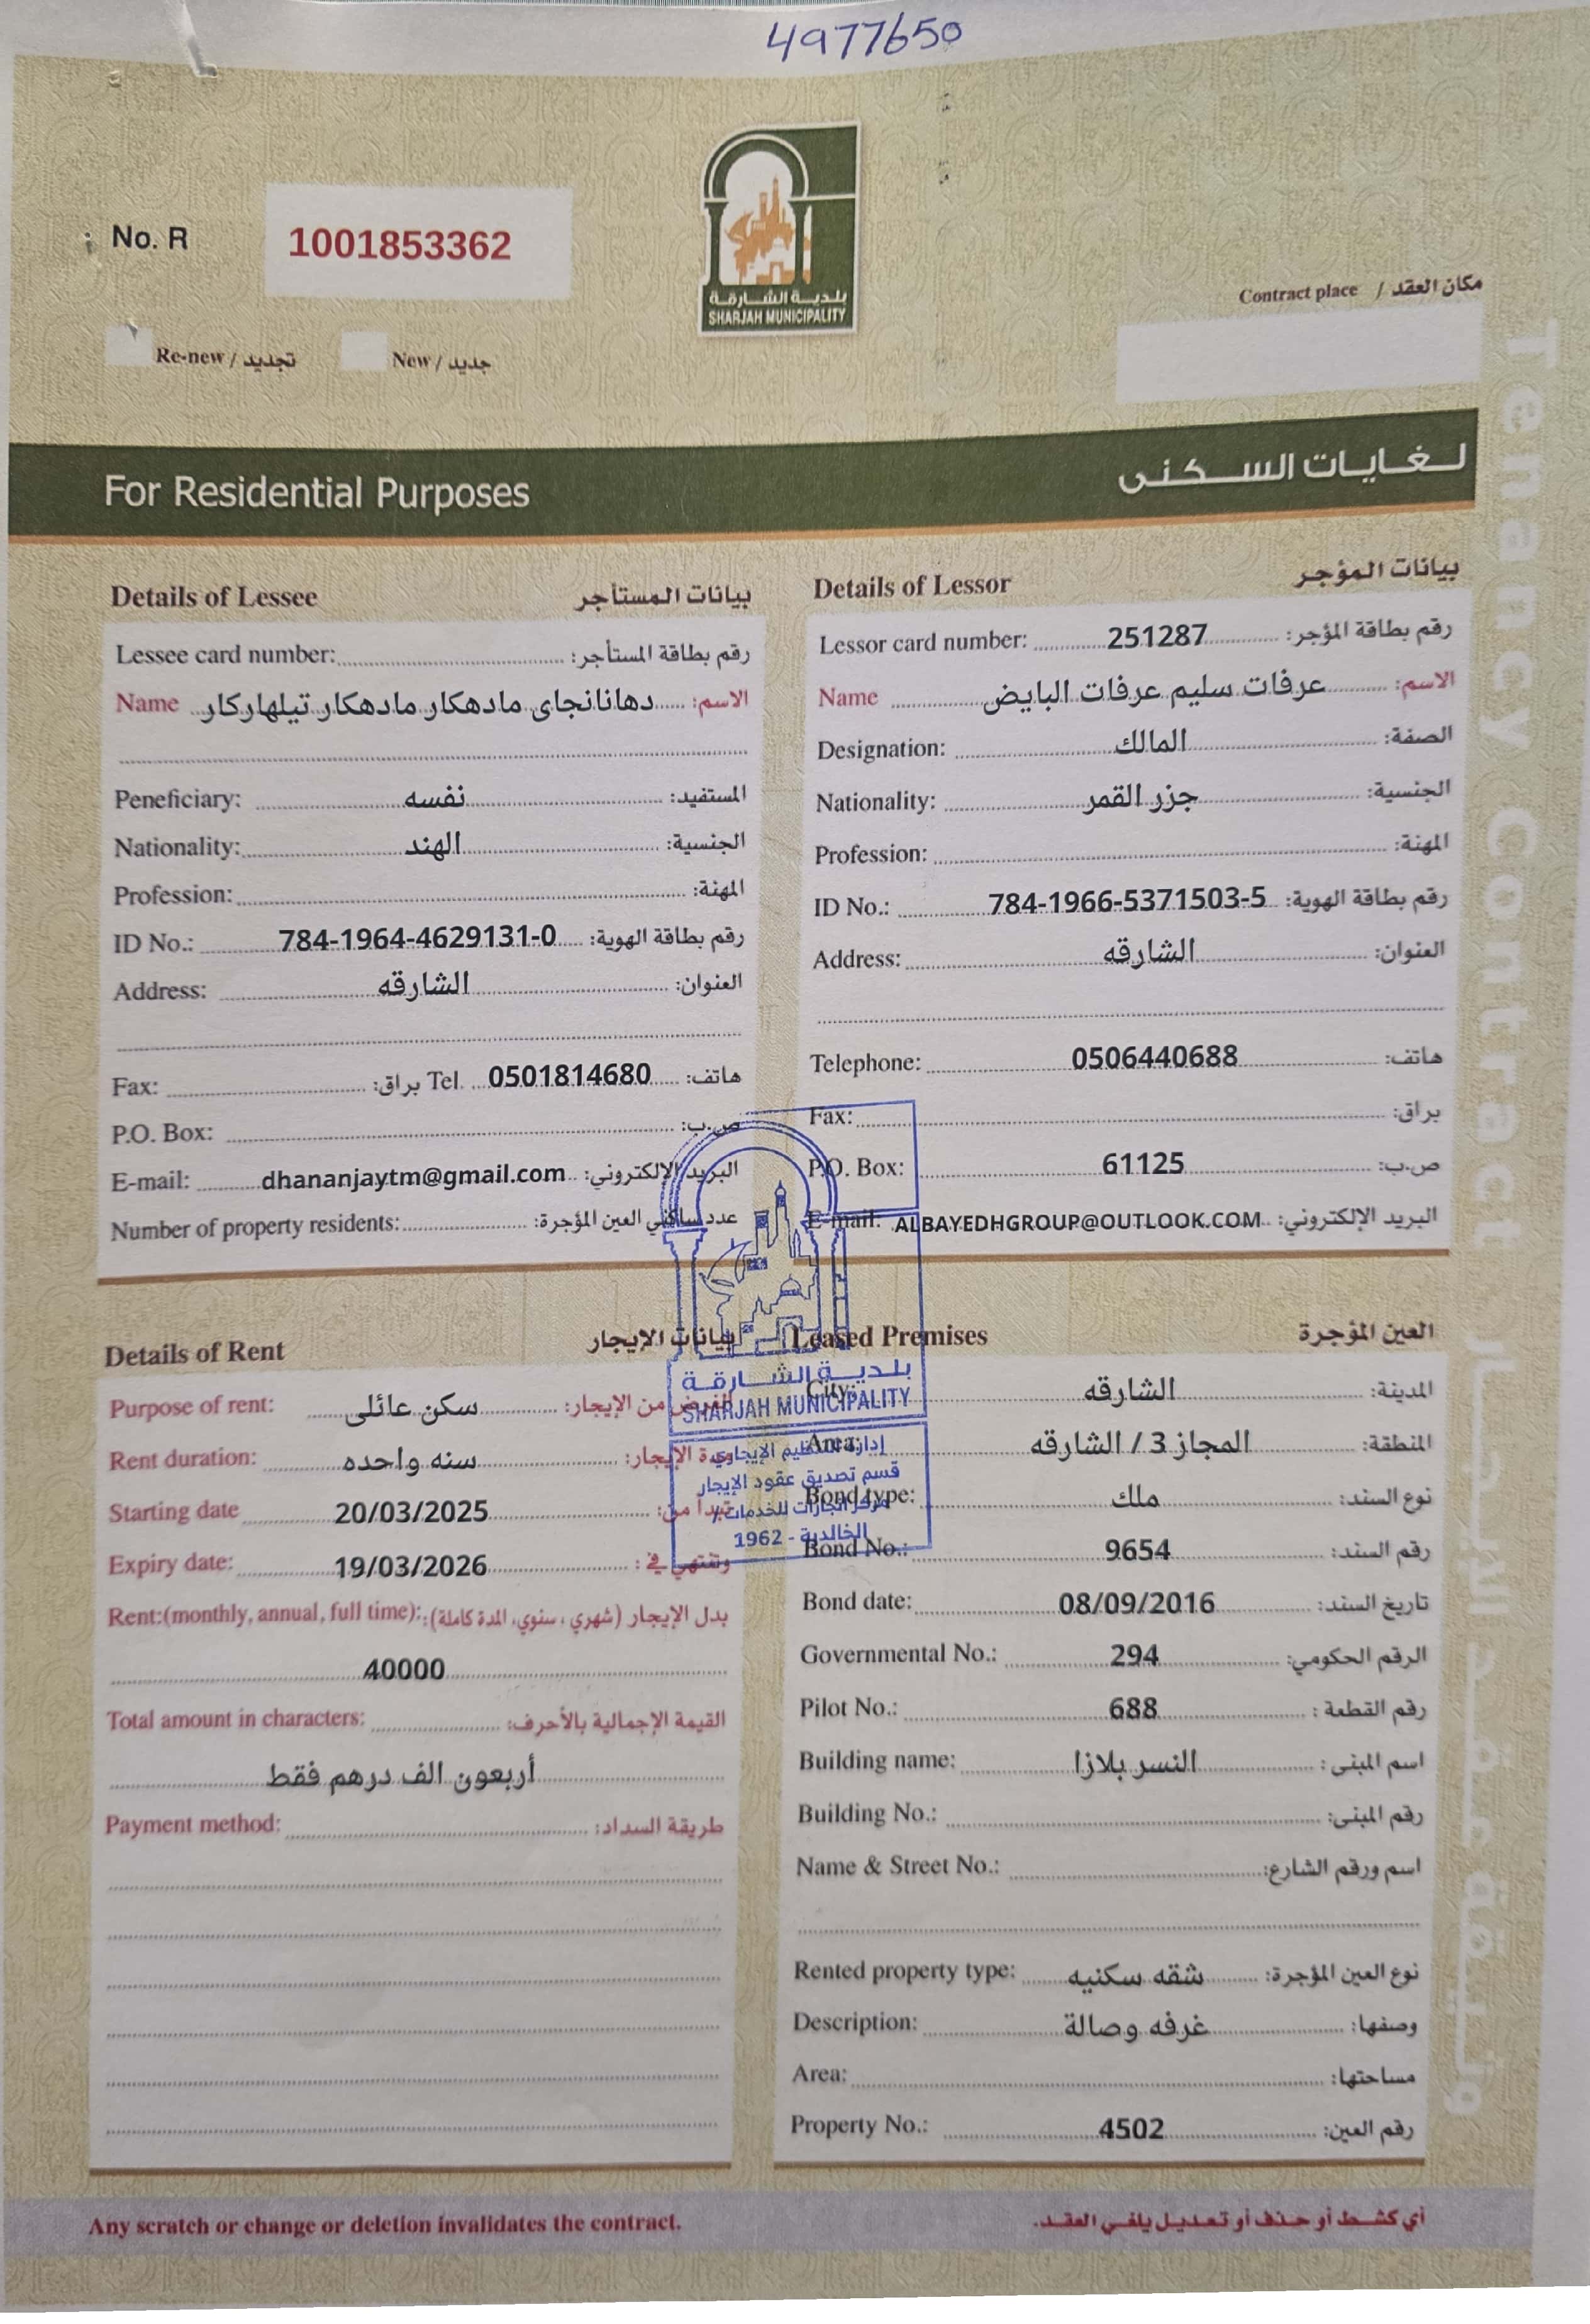 4977650
No. R 1001853362
بلدية الشارقة
SHARJAH MUNICIPALITY
Contract place / مكان العقد
Re-new / تجديد
New / جديد
For Residential Purposes
لغايات السكنى
Tenancy Contract
Details of Lessee بيانات المستأجر
Lessee card number: رقم بطاقة المستأجر:
Name دهانانجاى مادهكار مادهكار تيلهاركار الاسم:
Peneficiary: نفسه المستفيد:
Nationality: الهند الجنسية:
Profession: المهنة:
ID No.: 784-1964-4629131-0 رقم بطاقة الهوية:
Address: الشارقه العنوان:
Fax: براق: Tel. 0501814680 هاتف:
P.O. Box: ص.ب:
E-mail: dhananjaytm@gmail.com البريد الإلكتروني:
Number of property residents: عدد ساكني العين المؤجرة:
Details of Lessor بيانات المؤجر
Lessor card number: 251287 رقم بطاقة المؤجر:
Name عرفات سليم عرفات البايض الاسم:
Designation: المالك الصفة:
Nationality: جزر القمر الجنسية:
Profession: المهنة:
ID No.: 784-1966-5371503-5 رقم بطاقة الهوية:
Address: الشارقه العنوان:
Telephone: 0506440688 هاتف:
Fax: براق:
P.O. Box: 61125 ص.ب:
E-mail: ALBAYEDHGROUP@OUTLOOK.COM البريد الإلكتروني:
Details of Rent بيانات الإيجار
Purpose of rent: سكن عائلى الغرض من الإيجار:
Rent duration: سنه واحده مدة الإيجار:
Starting date 20/03/2025 تبدأ من:
Expiry date: 19/03/2026 وتنتهي في :
Rent:(monthly, annual, full time): بدل الإيجار (شهري ، سنوي، المدة كاملة):
40000
Total amount in characters: القيمة الإجمالية بالأحرف:
أربعون الف درهم فقط
Payment method: طريقة السداد:
بلدية الشارقة
SHARJAH MUNICIPALITY
إدارة التنظيم الإيجاري
قسم تصديق عقود الإيجار
للخدمات /
الخالدية - 1962
Leased Premises العين المؤجرة
City: الشارقه المدينة:
Area: المجاز 3 / الشارقه المنطقة:
Bond type: ملك نوع السند:
Bond No.: 9654 رقم السند:
Bond date: 08/09/2016 تاريخ السند:
Governmental No.: 294 الرقم الحكومي:
Pilot No.: 688 رقم القطعة :
Building name: النسر بلازا اسم المبنى :
Building No.: رقم المبنى:
Name & Street No.: اسم ورقم الشارع:
Rented property type: شقه سكنيه نوع العين المؤجرة:
Description: غرفه وصالة وصفها:
Area: مساحتها:
Property No.: 4502 رقم العين:
Any scratch or change or deletion invalidates the contract.
أي كشط أو حذف أو تعديل يلغي العقد.